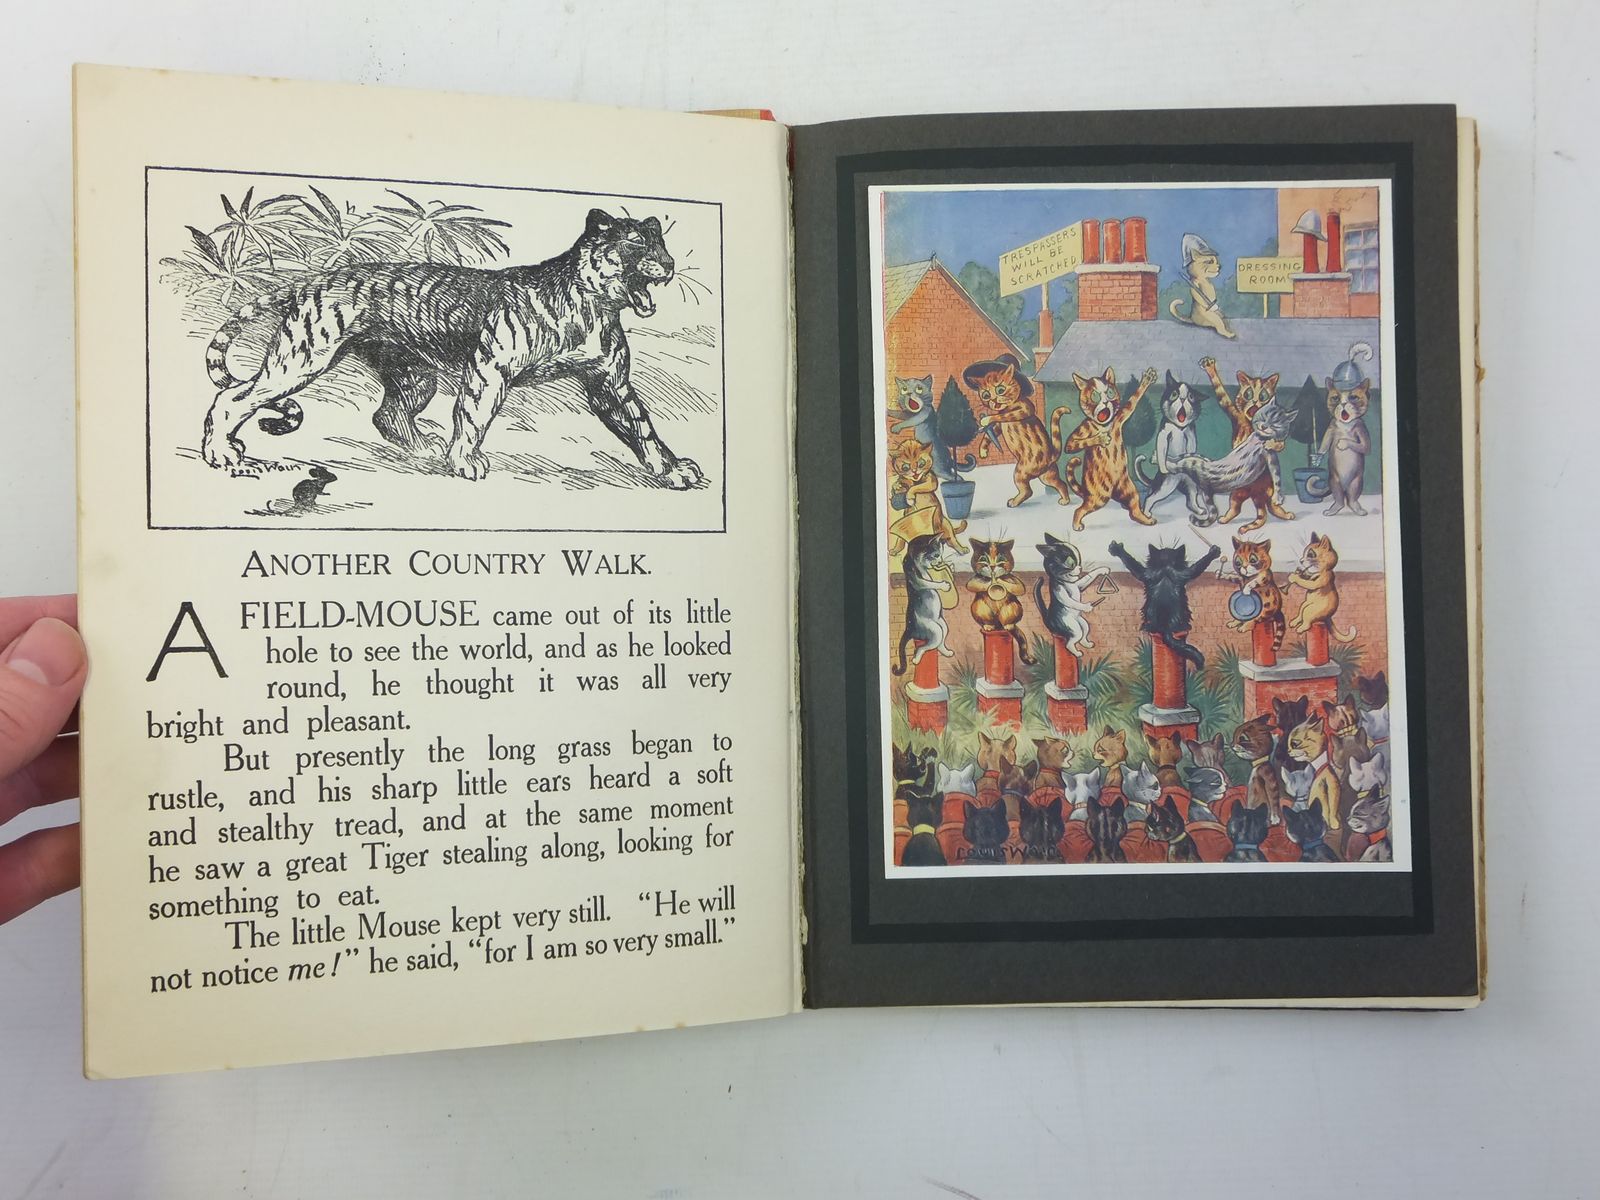 Louis Wain
ANOTHER COUNTRY WALK.
A FIELD-MOUSE came out of its little
hole to see the world, and as he looked
round, he thought it was all very
bright and pleasant.
But presently the long grass began to
rustle, and his sharp little ears heard a soft
and stealthy tread, and at the same moment
he saw a great Tiger stealing along, looking for
something to eat.
The little Mouse kept very still. “He will
not notice me!” he said, “for I am so very small.”
TRESPASSERS
WILL BE
SCRATCHED
DRESSING
ROOM
Louis Wain